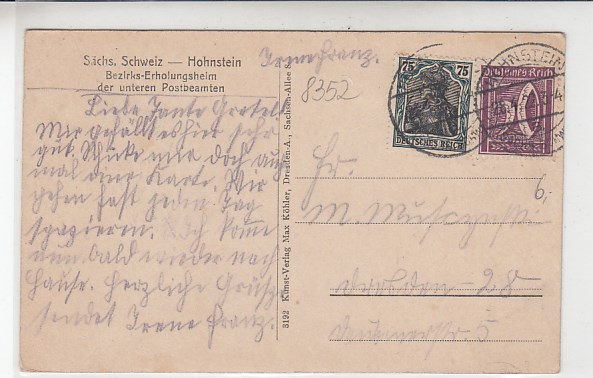 Sächs. Schweiz — Hohnstein
Bezirks-Erholungsheim
der unteren Postbeamten
Irene Franz.
8352
75 75
DEUTSCHES REICH
Deutsches Reich
HOHNSTEIN
Liebe Tante Gretel!
Mir gefällt es hier sehr
gut. Schicke mir doch auch
mal eine Karte. Wir
gehen fast jeden Tag
spazieren. Ich komme
nun bald wieder nach
Hause. Herzliche Grüße
sendet Irene Franz.
3192 Kunst-Verlag Max Köhler, Dresden-A., Sachsen-Allee 8.
6,-
Fr.
M.
Dresden – 28
5